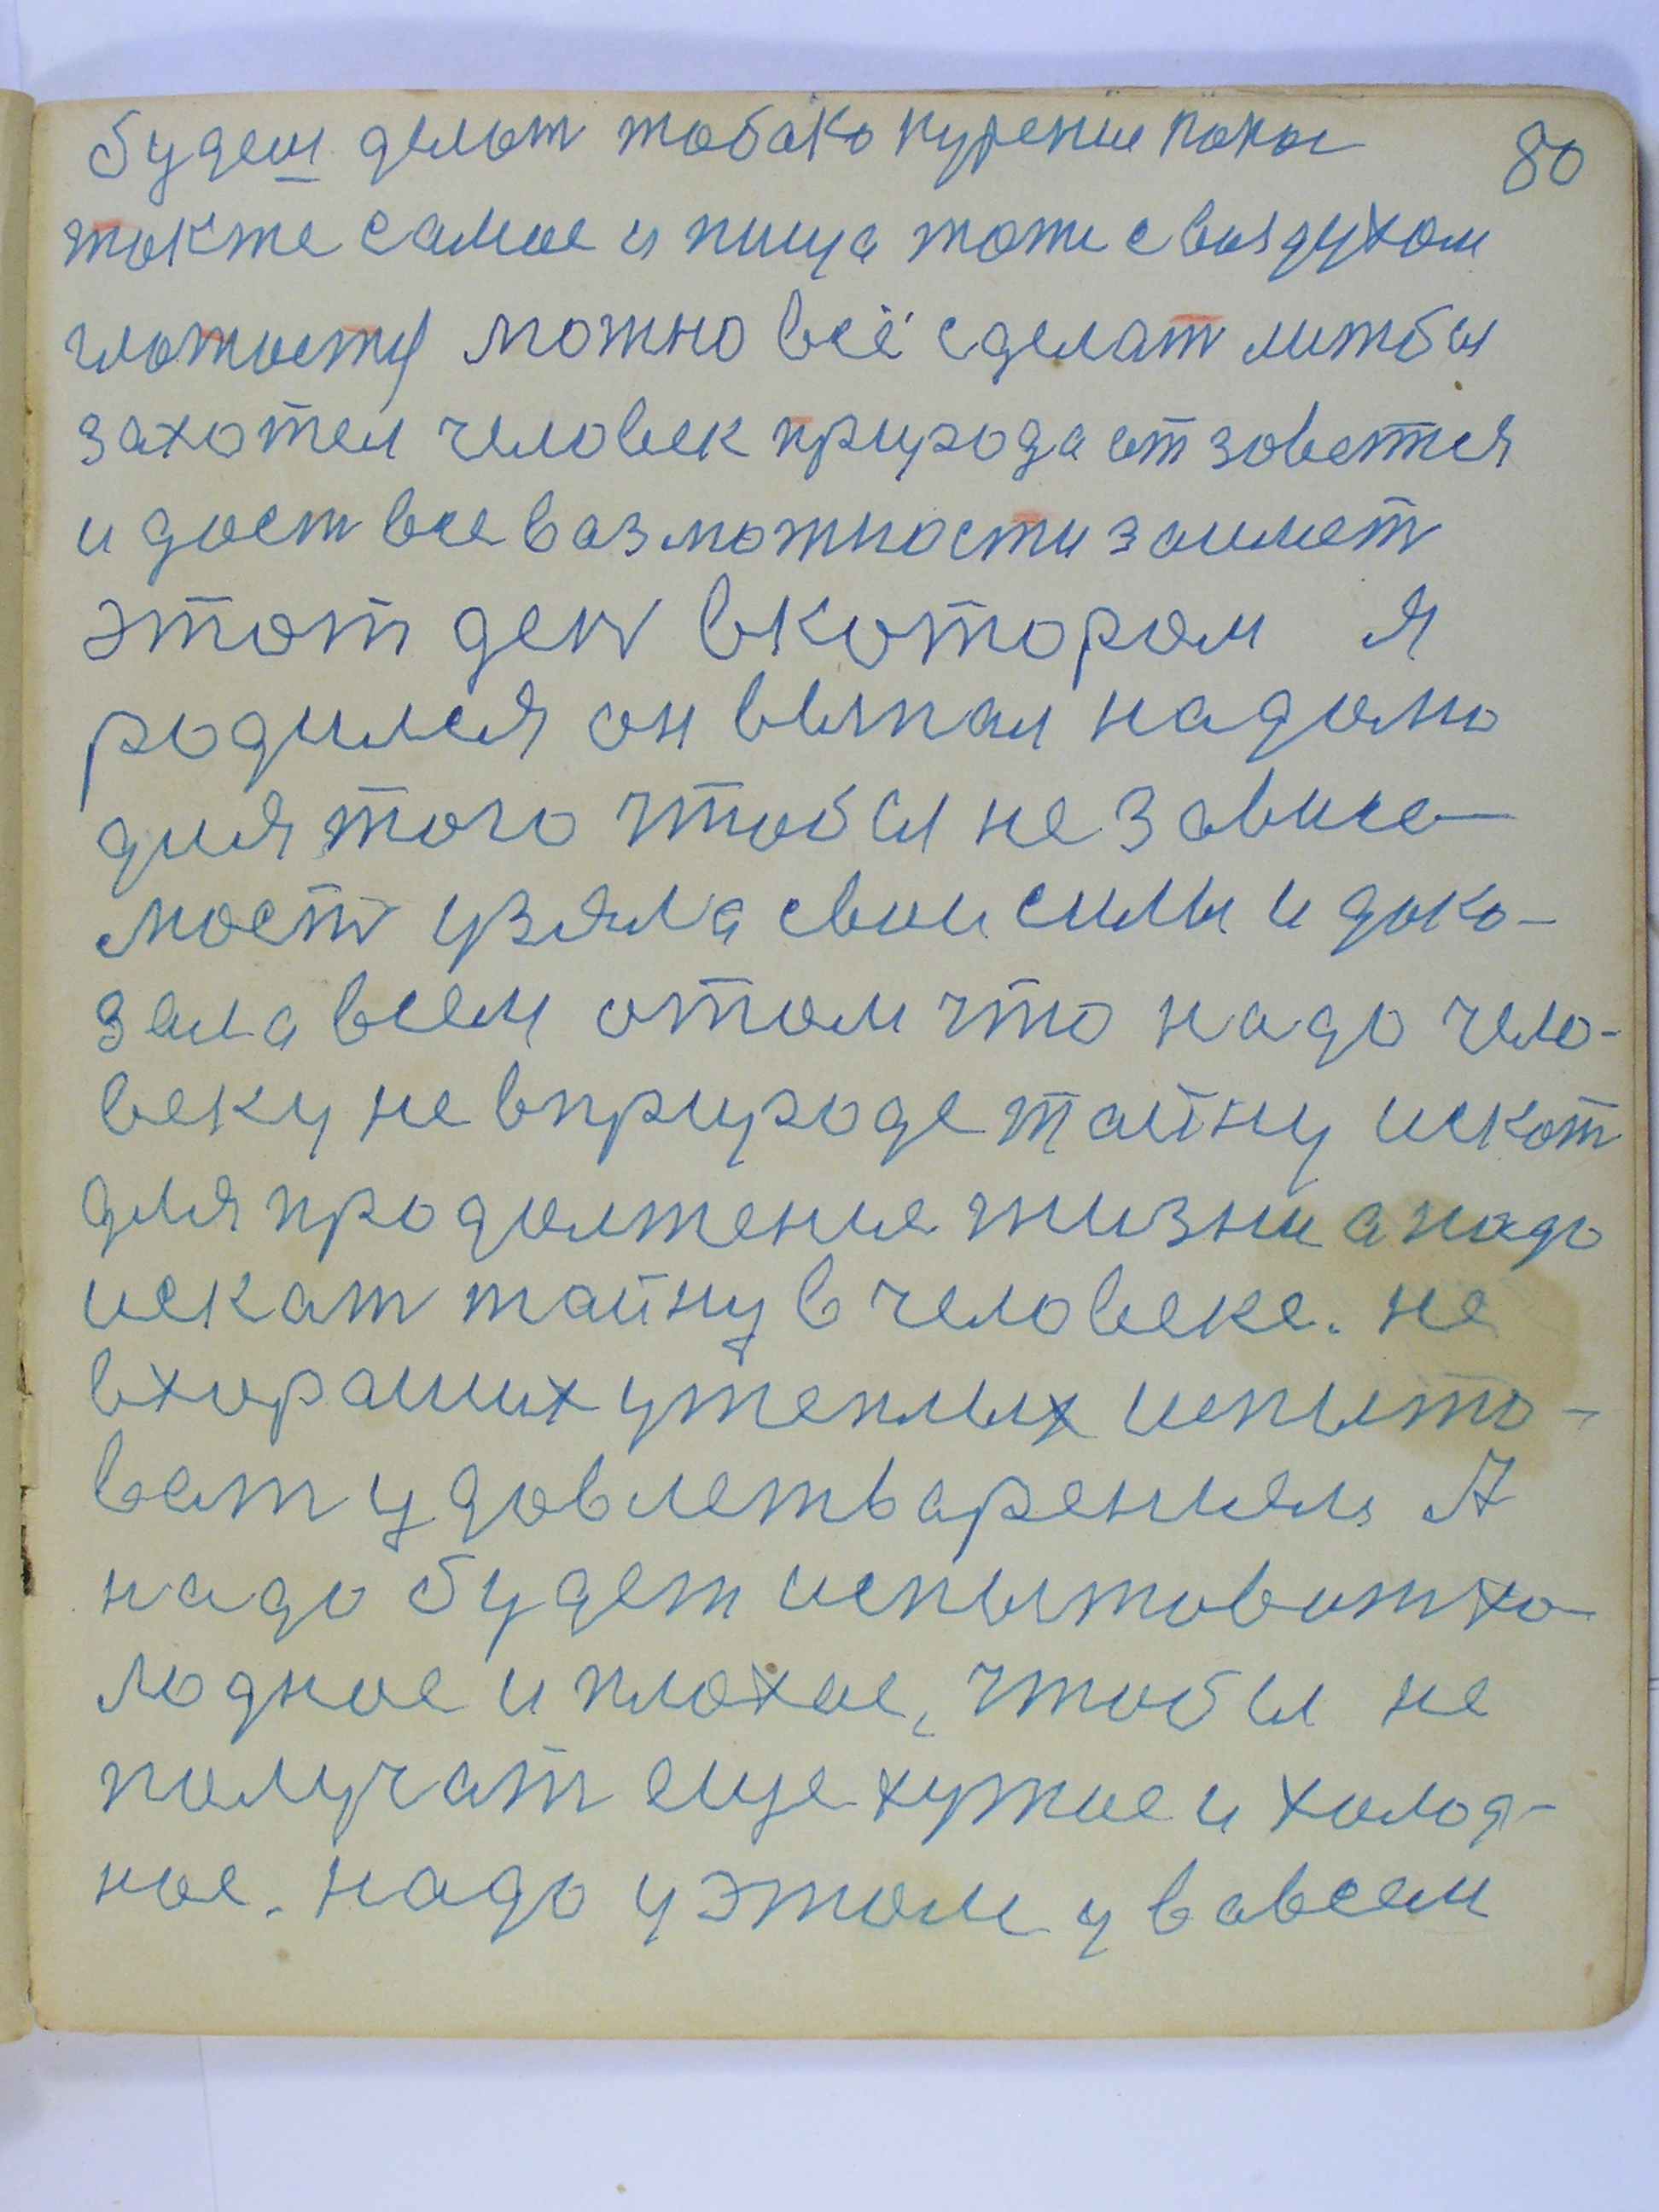 будеш делат табако курение пока 80
также самое и пища тоже с воздухом
можно всё сделат лижбы
захотел человек природа отзоветися
и даст все вазможности заимет
этот ден в котором я
родился он выпал на долю
для того чтобы не зависе-
мост узяла свои силы и дока-
зала всем о том что надо чело-
веку не в природе тайну искат
для продолжение жизни а надо
искат тайну в человеке. не
в хораших у теплых испыто-
ват удовлетварением А
надо будет испытоват хо-
лодное и плохое, чтобы не
получат еще хужое и холод-
ное. надо у этом у вавсем